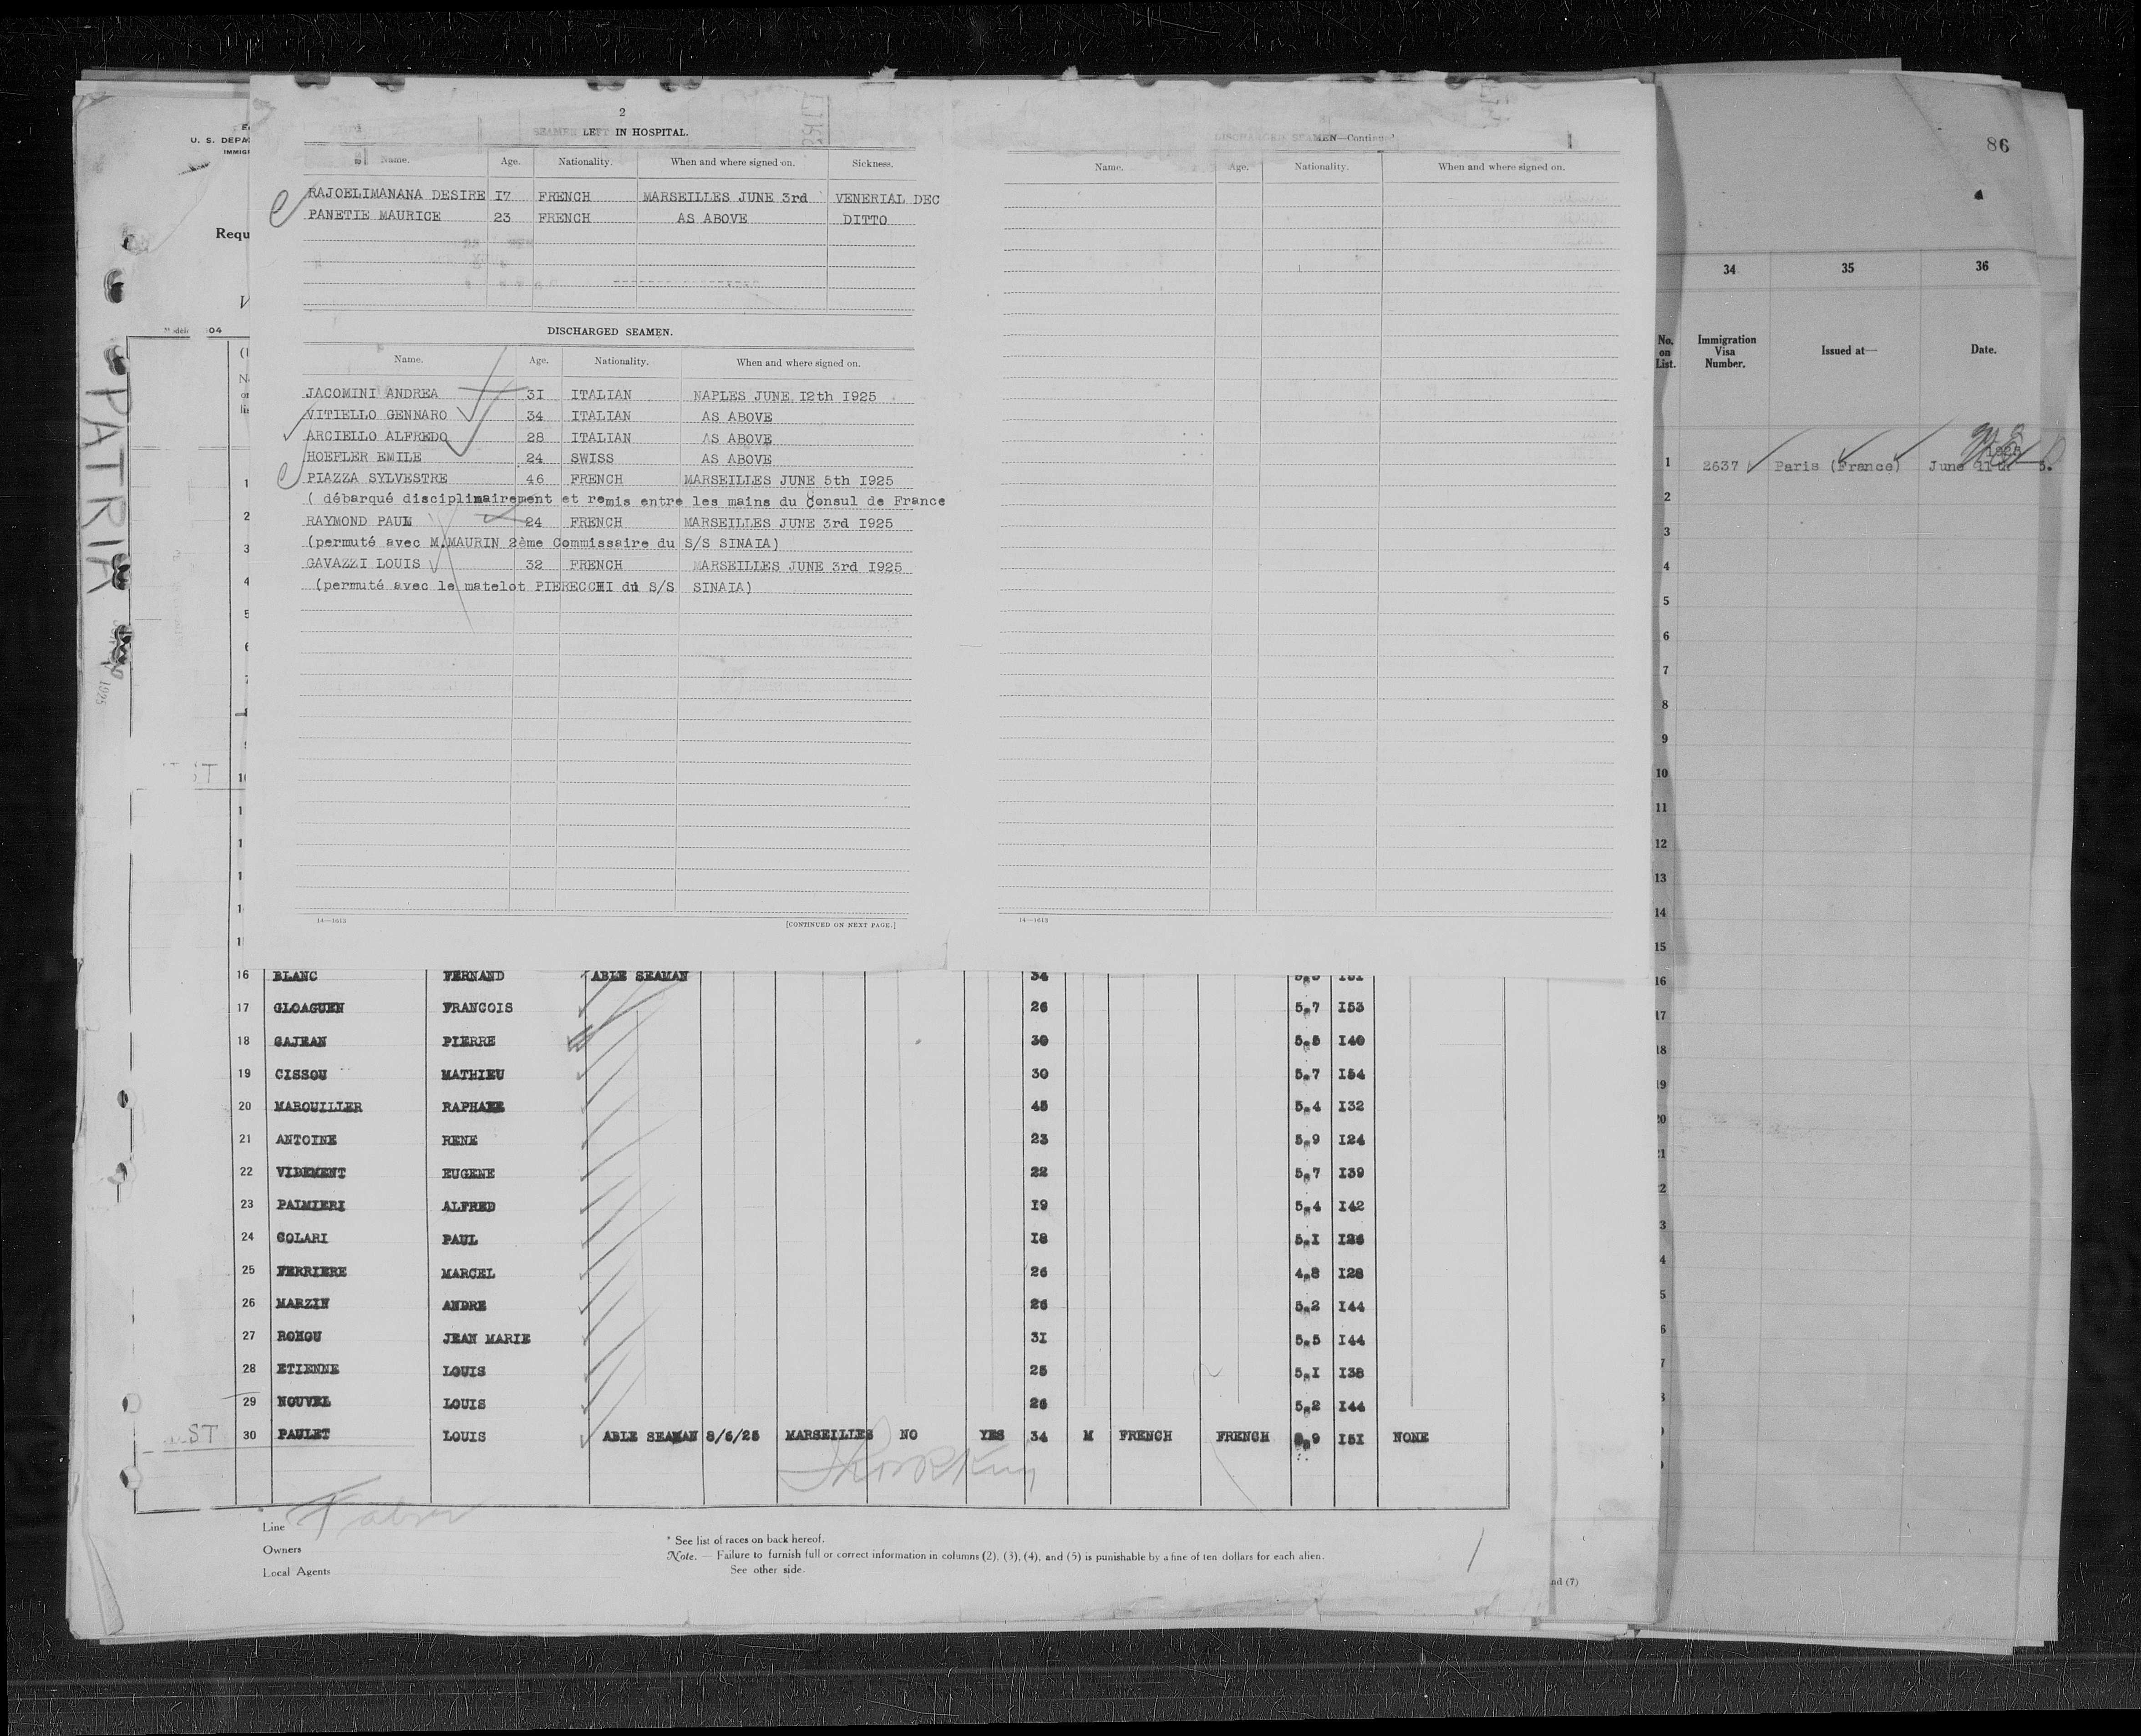 2
SEAMEN LEFT IN HOSPITAL.
Name. Age. Nationality. When and where signed on. Sickness.
RAJOELIMANANA DESIRE I7 FRENCH MARSEILLES JUNE 3rd VENERIAL DEC
PANETIE MAURICE 23 FRENCH AS ABOVE DITTO
DISCHARGED SEAMEN.
Name. Age. Nationality. When and where signed on.
JACOMINI ANDREA 3I ITALIAN NAPLES JUNE I2th I925
VITIELLO GENNARO 34 ITALIAN AS ABOVE
ARCIELLO ALFREDO 28 ITALIAN AS ABOVE
HOEFLER EMILE 24 SWISS AS ABOVE
PIAZZA SYLVESTRE 46 FRENCH MARSEILLES JUNE 5th I925
( débarqué disciplinairement et remis entre les mains du Consul de France
RAYMOND PAUL 24 FRENCH MARSEILLES JUNE 3rd I925
(permuté avec M.MAURIN 2ème Commissaire du S/S SINAIA)
GAVAZZI LOUIS 32 FRENCH MARSEILLES JUNE 3rd I925
(permuté avec le matelot PIERECCHI du S/S SINAIA)
14—1613
[CONTINUED ON NEXT PAGE.]
DISCHARGED SEAMEN—Continued
Name. Age. Nationality. When and where signed on.
14—1613
U. S. DEPA
IMMIG
Requ
04
PATRIA
1925
86
34 35 36
No. on List. Immigration Visa Number. Issued at— Date.
1 2637 Paris (France) June 11th
2
3
4
5
6
7
8
9
10
11
12
13
14
15
16
17
18
19
20
21
16 BLANC FERNAND ABLE SEAMAN 34
17 GLOAGUEN FRANCOIS 26 5,7 I53
18 GAJEAN PIERRE 30 5,5 I40
19 CISSOU MATHIEU 30 5,7 I54
20 MAROUILLER RAPHAEL 45 5,4 I32
21 ANTOINE RENE 23 5,9 I24
22 VIDEMENT EUGENE 22 5,7 I39
23 PALMIERI ALFRED I9 5,4 I42
24 COLARI PAUL I8 5,I I26
25 FERRIERE MARCEL 26 4,8 I28
26 MARZIN ANDRE 26 5,2 I44
27 ROHOU JEAN MARIE 3I 5,5 I44
28 ETIENNE LOUIS 25 5,I I38
29 NOUVEL LOUIS 26 5,2 I44
ST 30 PAULET LOUIS ABLE SEAMAN 8/6/25 MARSEILLES NO YES 34 M FRENCH FRENCH I5I NONE
Line Fabre
Owners
Local Agents
* See list of races on back hereof.
Note. — Failure to furnish full or correct information in columns (2), (3), (4), and (5) is punishable by a fine of ten dollars for each alien.
See other side.
nd (7)